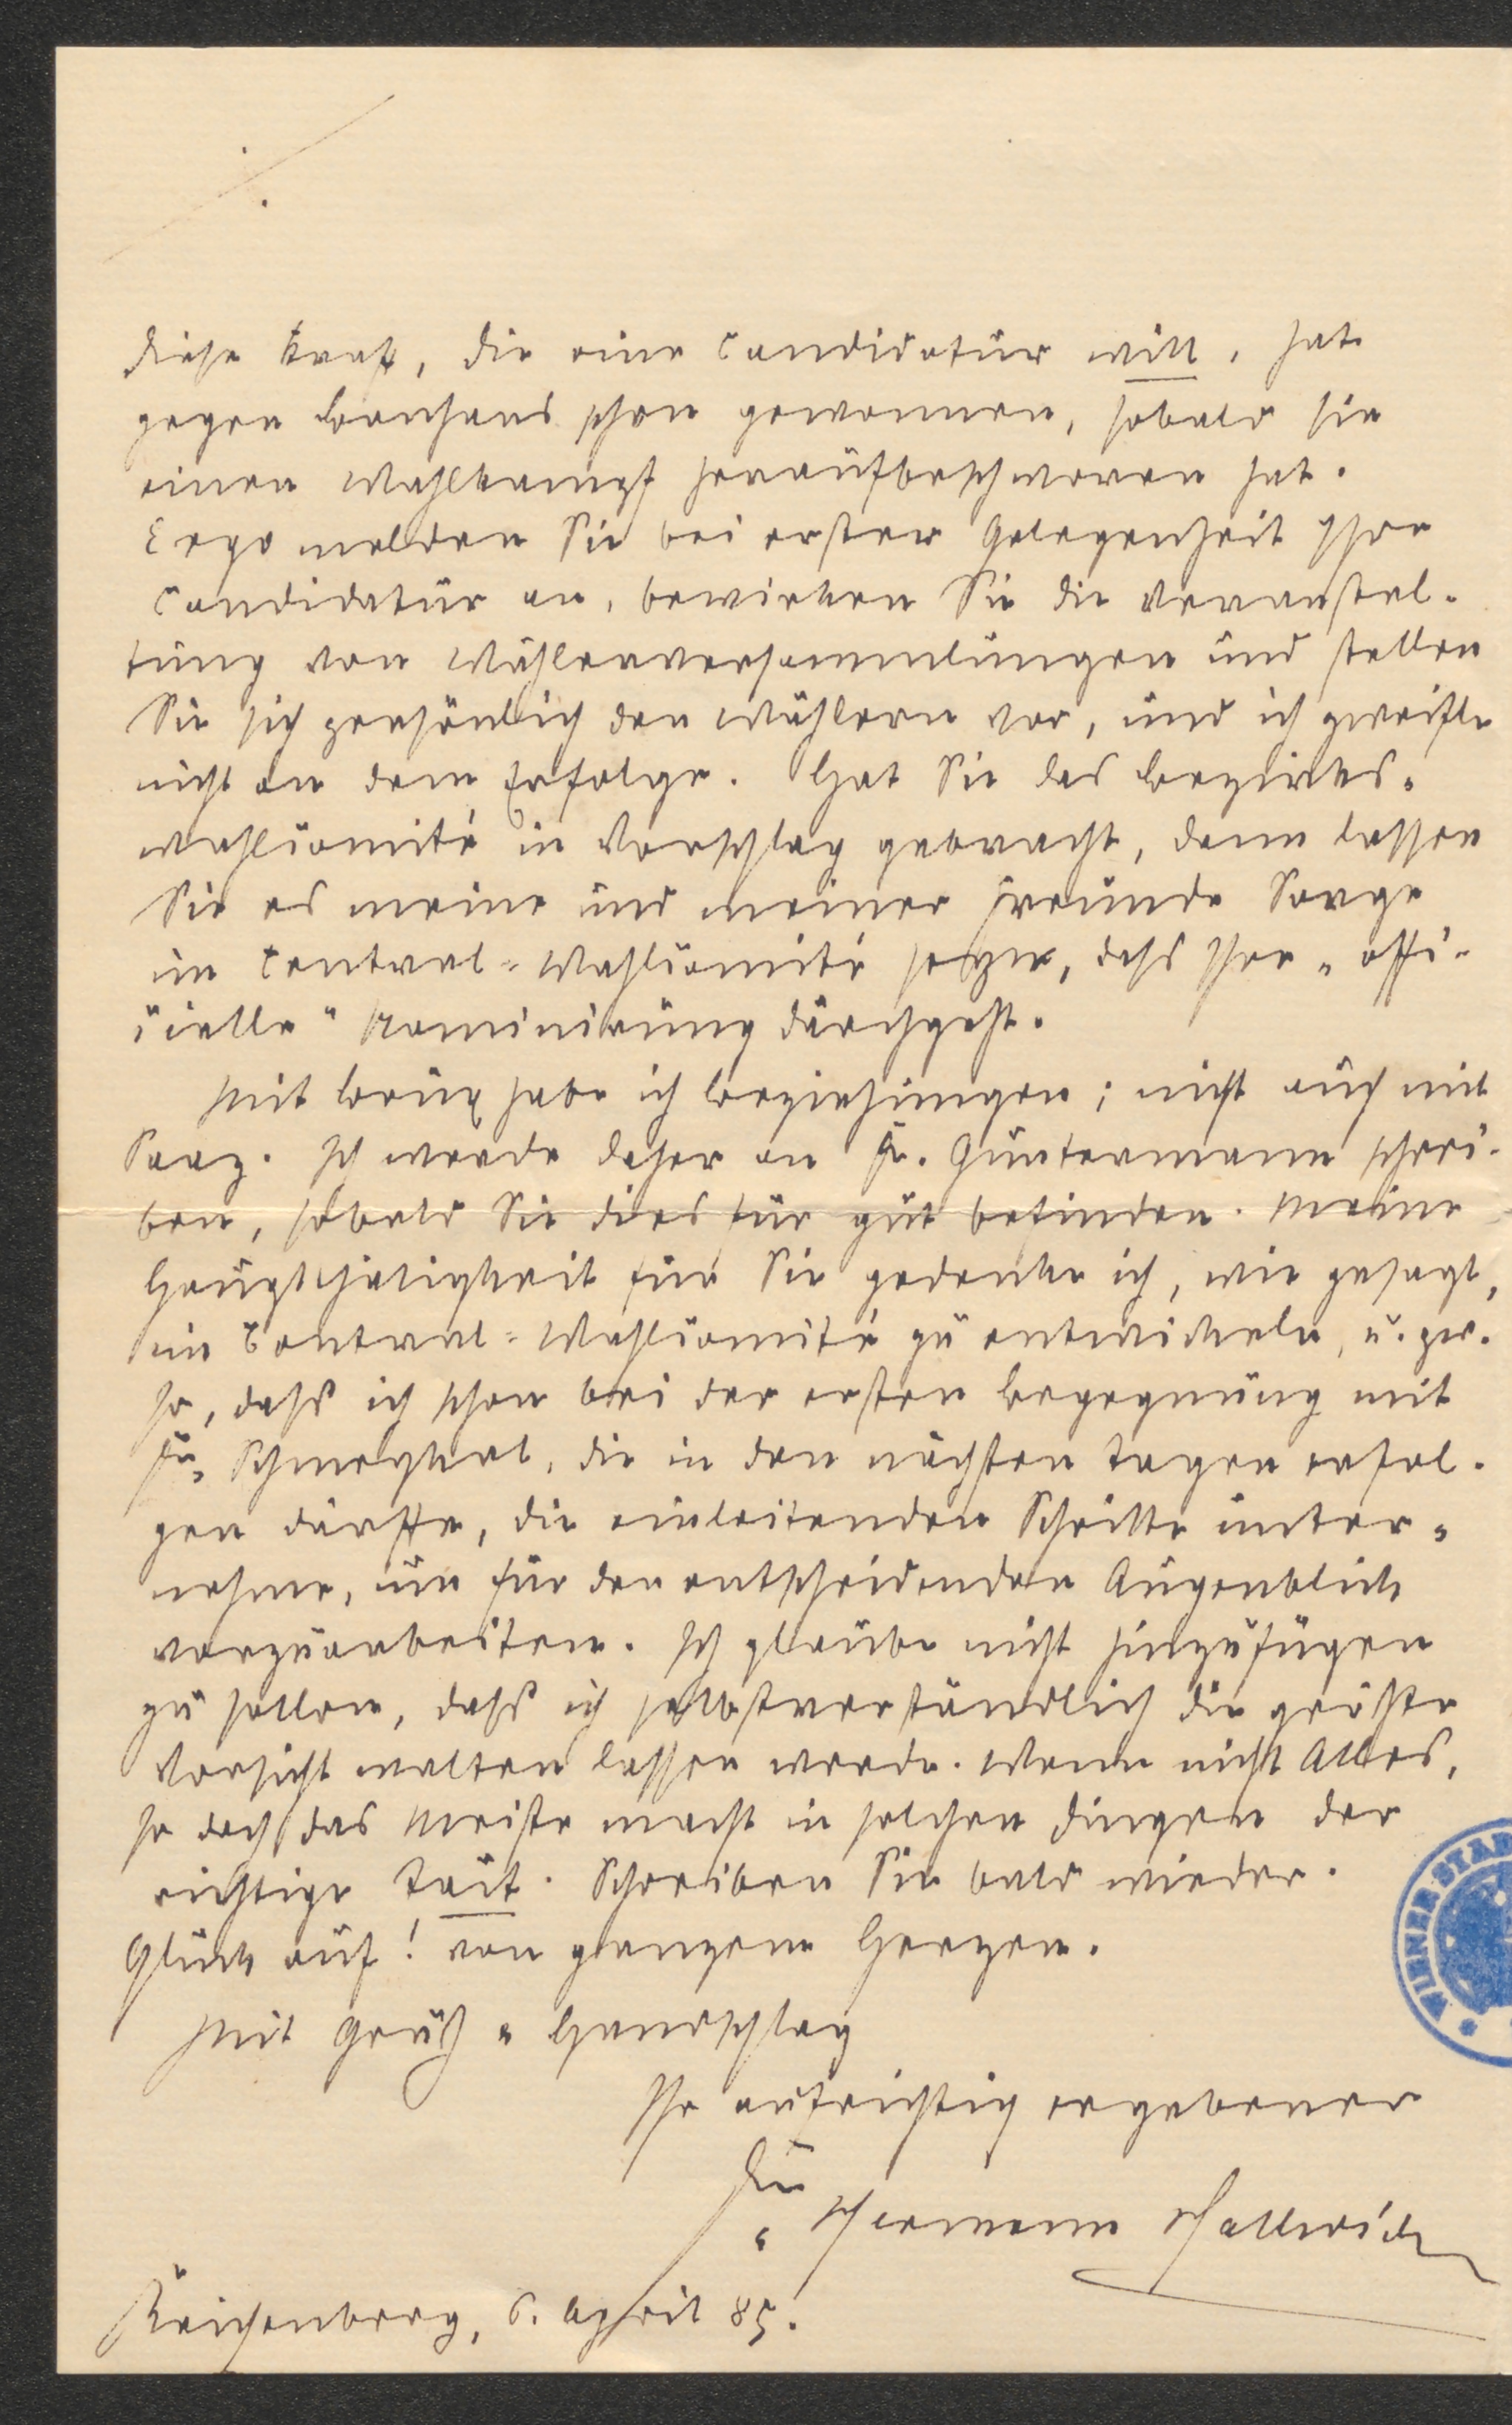 diese Kraft, die eine Candidatur will, hat
gegen Banhans schon gewonnen, sobald sie
einen Wahlkampf heraufbeschworen hat.
Ergo melden Sie bei erster Gelegenheit Ihre
Candidatur an, bewirken Sie die Veranstal-
tung von Wählerversammlungen und stellen
Sie sich persönlich den Wählern vor, und ich zweifle
nicht an dem Erfolge. Hat Sie das Bezirks-
wahlcomité in Vorschlag gebracht, dann lassen
Sie es meine und meiner Freunde Sorge
im Central-Wahlcomité sein, dass Ihre „offi-
cielle" Nominirung durchgeht.
Mit Brüx habe ich Beziehungen; nicht auch mit
Saaz. Ich werde daher an Dr. Guntermann schrei-
ben, sobald Sie dies für gut befinden. Meine
Hauptthätigkeit für Sie gedenke ich, wie gesagt,
im Central-Wahlcomité zu entwickeln, u. zw.
so, daß ich schon bei der ersten Begegnung mit
Dr. Schmeykal, die in den nächsten Tagen erfol-
gen dürfte, die einleitenden Schritte unter-
nehme, um für den entscheidenden Augenblick
vorzuarbeiten. Ich glaube nicht hinzufügen
zu sollen, daß ich selbstverständlich die größte
Vorsicht walten lassen werde. Wenn nicht Alles,
so doch das Meiste macht in solchen Dingen der
richtige Tact. Schreiben Sie bald wieder.
Glück auf! von ganzem Herzen.
Mit Gruß u Handschlag
Ihr aufrichtig ergebener
Dr. Hermann Hallwich
Reichenberg, 6. April 85.
WIENER STAD